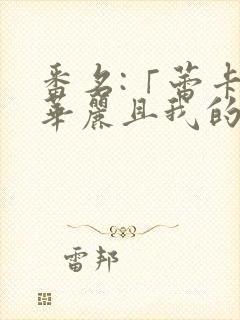 番名:「蕾卡
華麗且我的
雷邦